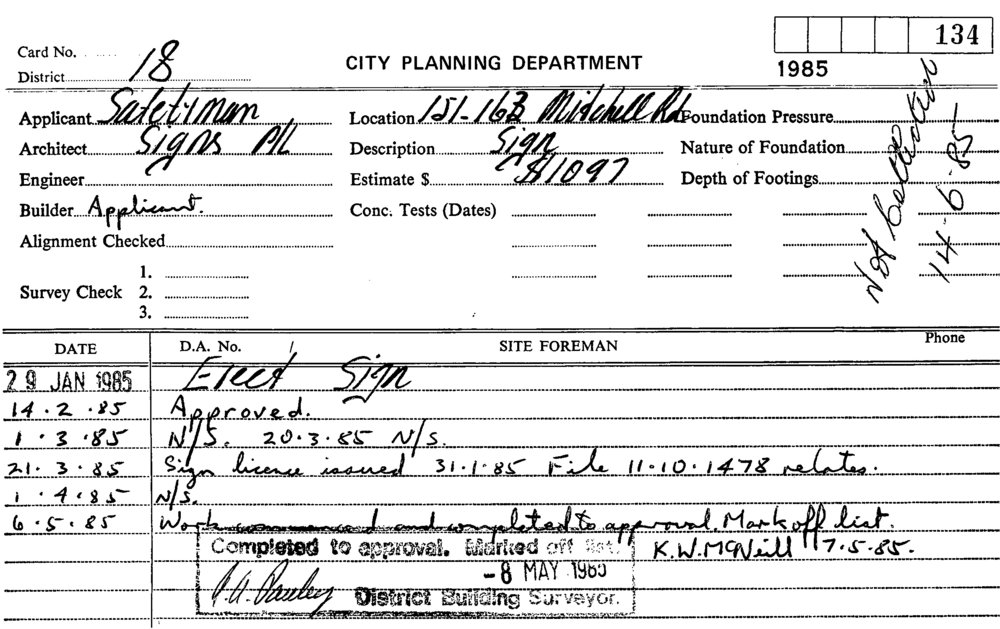 134
Card No.
District 18
CITY PLANNING DEPARTMENT
1985
Applicant Safetyman Location 151-163 Mitchell Rd Foundation Pressure
Architect Signs P/L Description Sign Nature of Foundation
Engineer Estimate $ $1097 Depth of Footings
Builder Applicant. Conc. Tests (Dates)
Alignment Checked
1.
Survey Check 2.
3.
Not Collection
14·6·85
DATE D.A. No. SITE FOREMAN Phone
29 JAN 1985 Erect Sign
14·2·85 Approved.
1·3·85 N/S. 20·3·85 N/S.
21·3·85 Sign licence issued 31·1·85 File 11·10·1478 relates.
1·4·85 N/S.
6·5·85 Work commenced and completed to approval. Mark off list.
Completed to approval. Marked off list. K.W.McNeill 7·5·85.
-8 MAY 1985
District Building Surveyor.